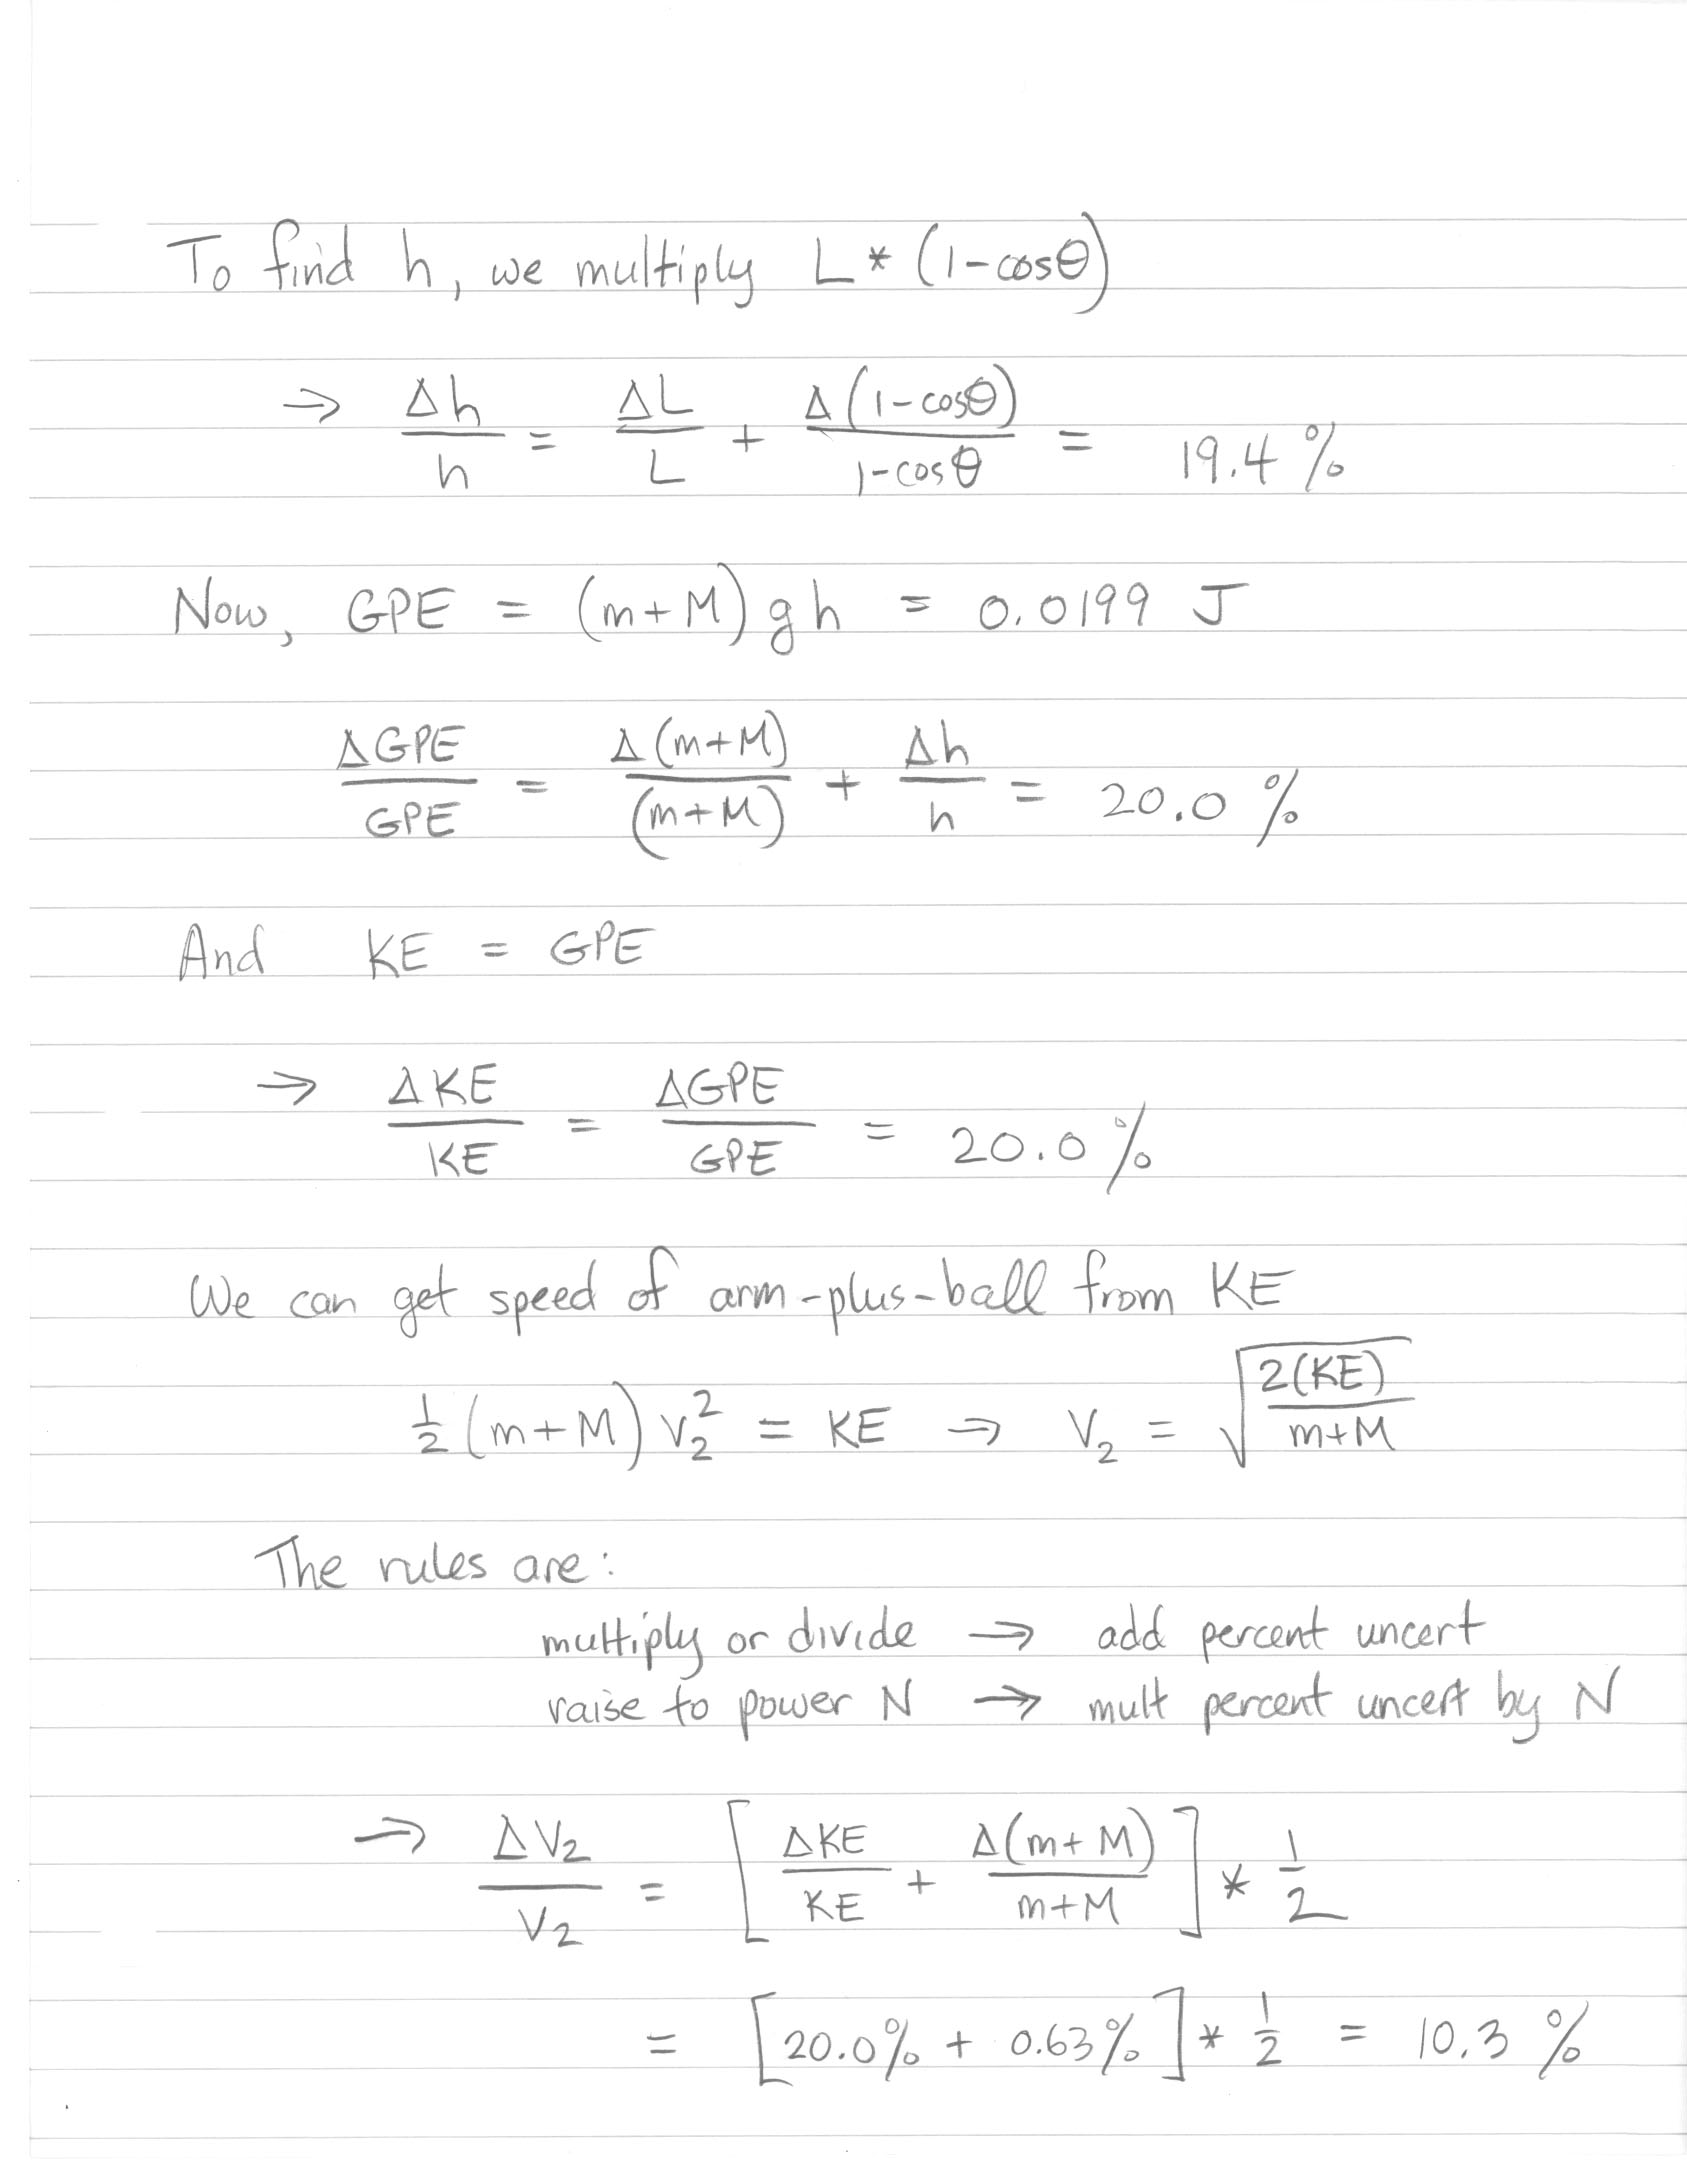 To find h, we multiply L * (1-cosθ)
⇒ Δh/h = ΔL/L + Δ(1-cosθ)/1-cosθ = 19.4 %
Now, GPE = (m+M) g h = 0.0199 J
ΔGPE/GPE = Δ(m+M)/(m+M) + Δh/h = 20.0 %
And KE = GPE
→ ΔKE/KE = ΔGPE/GPE = 20.0 %
We can get speed of arm-plus-ball from KE
1/2 (m+M) v₂² = KE → v₂ = √(2(KE)/m+M)
The rules are:
multiply or divide → add percent uncert
raise to power N → mult percent uncert by N
→ Δv₂/v₂ = [ΔKE/KE + Δ(m+M)/m+M] * 1/2
= [20.0% + 0.63%] * 1/2 = 10.3 %